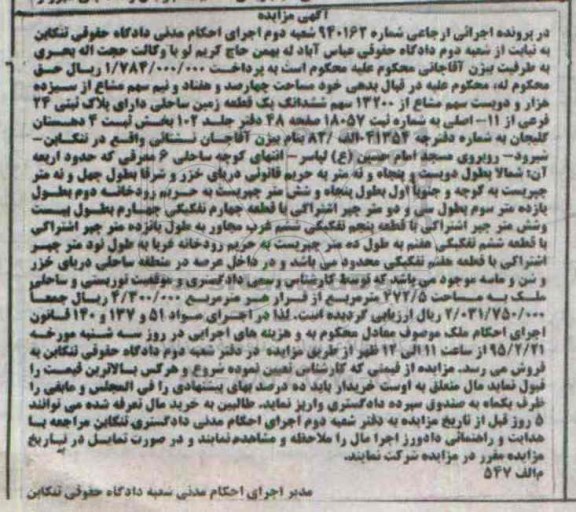 آگهی مزایده
در پرونده اجرائی ارجاعی شماره ۹۴۰۱۶۲ شعبه دوم اجرای احکام مدنی دادگاه حقوقی تنکابن
به نیابت از شعبه دوم دادگاه حقوقی عباس آباد له بهمن حاج کریم لو با وکالت حجت اله بحری
به طرفیت بیژن آقاجانی محکوم علیه محکوم است به پرداخت ۱/۷۸۴/۰۰۰/۰۰۰ ریال حق
محکوم له، محکوم علیه در قبال بدهی خود مساحت چهارصد و هفتاد و نیم سهم مشاع از سیزده
هزار و دویست سهم مشاع از ۱۳۲۰۰ سهم ششدانگ یک قطعه زمین ساحلی دارای پلاک ثبتی ۲۴
فرعی از ۱۱- اصلی به شماره ثبت ۱۸۰۵۷ صفحه ۴۸ دفتر جلد ۱۰۲ بخش ثبت ۴ دهستان
گلیجان به شماره دفترچه ۴۱۳۵۴-الف /۸۲ بنام بیژن آقاجان نشتائی واقع در تنکابن-
شیرود- روبروی مسجد امام حسین (ع) لپاسر- انتهای کوچه ساحلی ۶ معرفی که حدود اربعه
آن: شمالا بطول دویست و پنجاه و نه متر به حریم قانونی دریای خزر و شرقا بطول چهل و نه متر
چپریست به کوچه و جنوبا اول بطول پنجاه و شش متر چپریست به حریم رودخانه دوم بطول
یازده متر سوم بطول سی و دو متر چپر اشتراکی با قطعه چهارم تفکیکی چهارم بطول بیست
وشش متر چپر اشتراکی با قطعه پنجم تفکیکی ششم غرب مجاور به طول پانزده متر چپر اشتراکی
با قطعه ششم تفکیکی هفتم به طول ده متر چپریست به حریم رودخانه غربا به طول نود متر چپر
اشتراکی با قطعه هفتم تفکیکی محدود می باشد و در داخل عرصه در منطقه ساحلی دریای خزر
و شن و ماسه موجود می باشد که توسط کارشناس رسمی دادگستری و موقعیت توریستی و ساحلی
ملک به مساحت ۴۷۲/۵ مترمربع از قرار هر مترمربع ۴/۳۰۰/۰۰۰ ریال جمعا
۲/۰۳۱/۷۵۰/۰۰۰ ریال ارزیابی گردیده است. لذا در اجرای مواد ۵۱ و ۱۳۷ و ۱۴۰ قانون
اجرای احکام ملک موصوف معادل محکوم به و هزینه های اجرایی در روز سه شنبه مورخه
۹۵/۲/۲۱ از ساعت ۱۱ الی ۱۲ ظهر از طریق مزایده در دفتر شعبه دوم دادگاه حقوقی تنکابن به
فروش می رسد. مزایده از قیمتی که کارشناس تعیین نموده شروع و هرکس بالاترین قیمت را
قبول نماید مال متعلق به اوست خریدار باید ده درصد بهای پیشنهادی را فی المجلس و مابقی را
ظرف یکماه به صندوق سپرده دادگستری واریز نماید. طالبین به خرید مال تعرفه شده می توانند
۵ روز قبل از تاریخ مزایده به دفتر شعبه دوم اجرای احکام مدنی دادگستری تنکابن مراجعه با
هدایت و راهنمائی دادورز اجرا مال را ملاحظه و مشاهده نمایند و در صورت تمایل در تاریخ
مزایده مقرر در مزایده شرکت نمایند.
م/الف ۵۴۷
مدیر اجرای احکام مدنی شعبه دادگاه حقوقی تنکابن